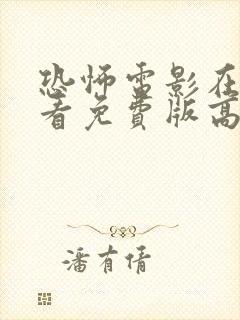 恐怖雷影在
看免費版高
潘有倩